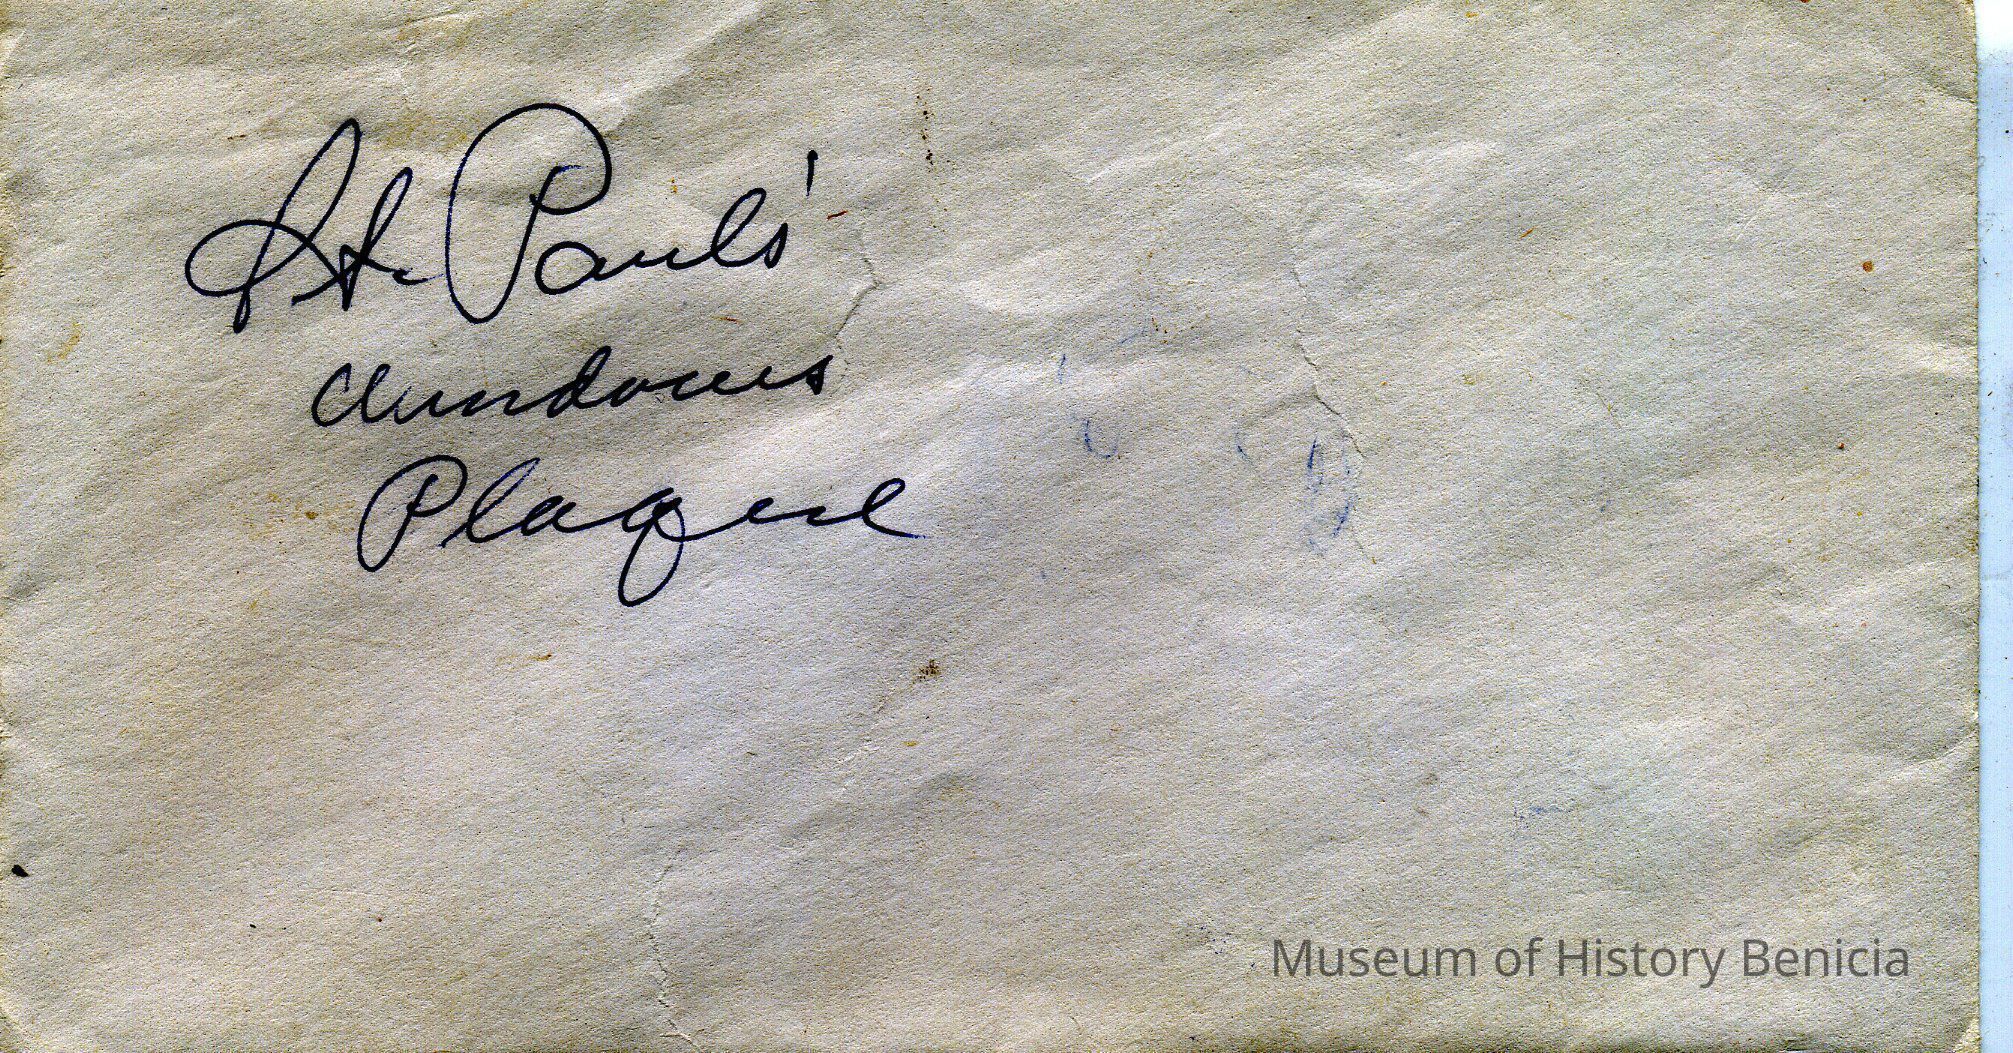 St. Pauls'
windows
Plaque
Museum of History Benicia